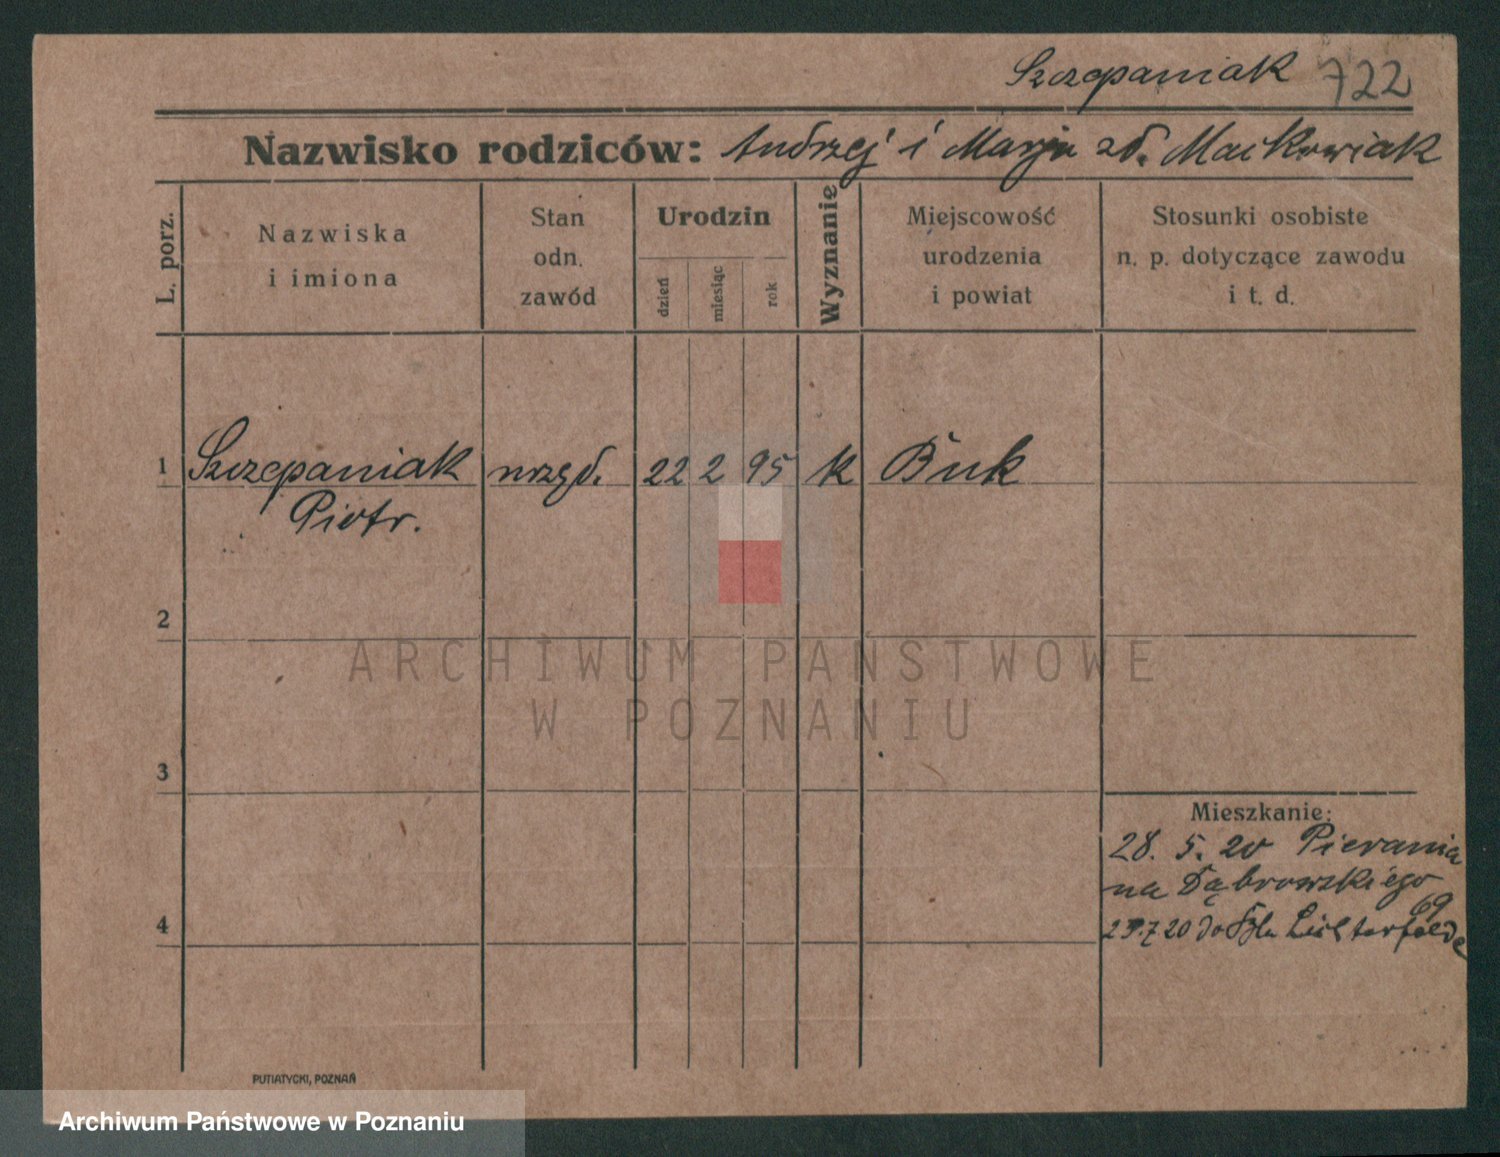 Szczepaniak 722
Nazwisko rodziców: Andrzej i Marja zd. Maćkowiak
L. porz.
Nazwiska
i imiona
Stan
odn.
zawód
Urodzin
dzień
miesiąc
rok
Wyznanie
Miejscowość
urodzenia
i powiat
Stosunki osobiste
n. p. dotyczące zawodu
i t. d.
1 Szczepaniak urzęd. 22 2 95 k Buk
Piotr.
2
ARCHIWUM PAŃSTWOWE
W POZNANIU
3
Mieszkanie:
28. 5. 20 Pierania
na Dąbrowskiego
69
4
7 20 do Lichterfelde
PUTIATYCKI, POZNAŃ
Archiwum Państwowe w Poznaniu